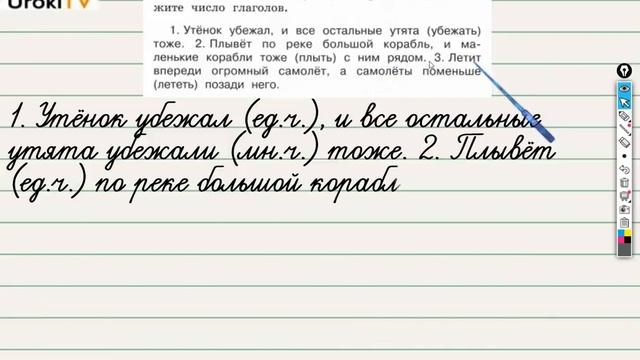 UrokiTV
жите число глаголов.
1. Утёнок убежал, и все остальные утята (убежать)
тоже. 2. Плывёт по реке большой корабль, и ма-
ленькие корабли тоже (плыть) с ним рядом. 3. Летит
впереди огромный самолёт, а самолёты поменьше
(лететь) позади него.
1. Утёнок убежал (ед.ч.), и все остальные
утята убежали (мн.ч.) тоже. 2. Плывёт
(ед.ч.) по реке большой корабл